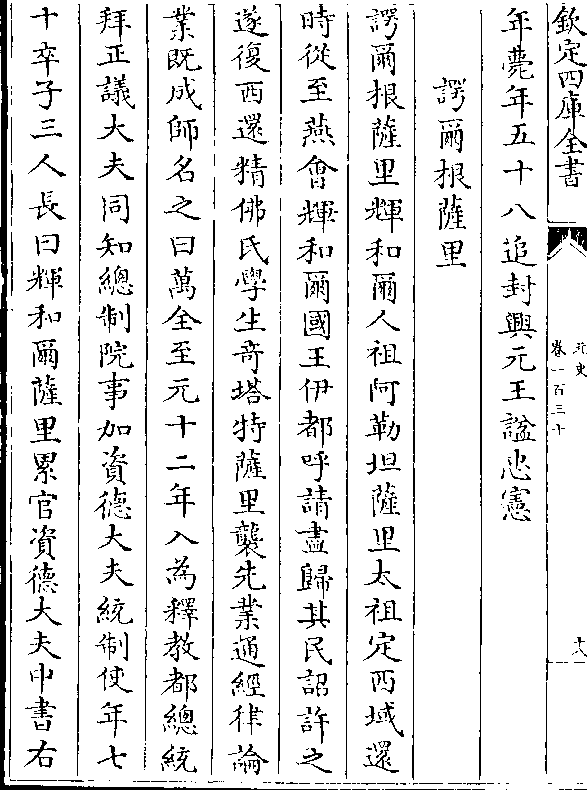 欽定四庫全書
元史
卷一百三十
十八
年薨年五十八追封興元王諡忠憲
諤爾根薩里
諤爾根薩里輝和爾人祖阿勒坦薩里太祖定西域還
時從至燕會輝和爾國王伊都呼請盡歸其民詔許之
遂復西還精佛氏學生奇塔特薩里襲先業通經律論
業既成師名之曰萬全至元十二年入為釋教都總統
拜正議大夫同知總制院事加資德大夫統制使年七
十卒子三人長曰輝和爾薩里累官資德大夫中書右